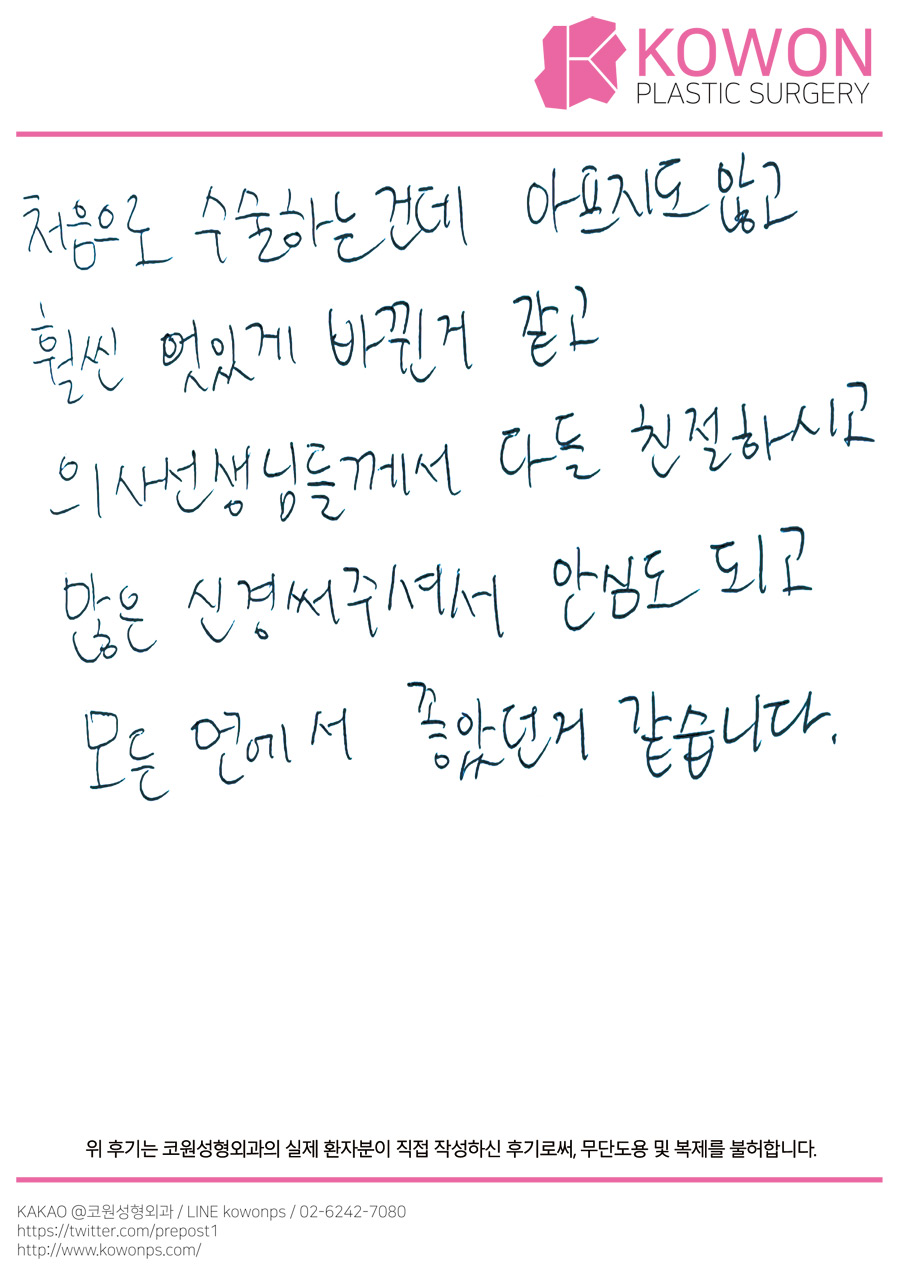 KOWON
PLASTIC SURGERY
처음으로 수술하는건데 아프지도 않고
훨씬 멋있게 바뀐거 같고
의사선생님들께서 다들 친절하시고
많은 신경써주셔서 안심도 되고
모든 면에서 좋았던거 같습니다.
위 후기는 코원성형외과의 실제 환자분이 직접 작성하신 후기로써, 무단도용 및 복제를 불허합니다.
KAKAO @코원성형외과 / LINE kowonps / 02-6242-7080
https://twitter.com/prepost1
http://www.kowonps.com/